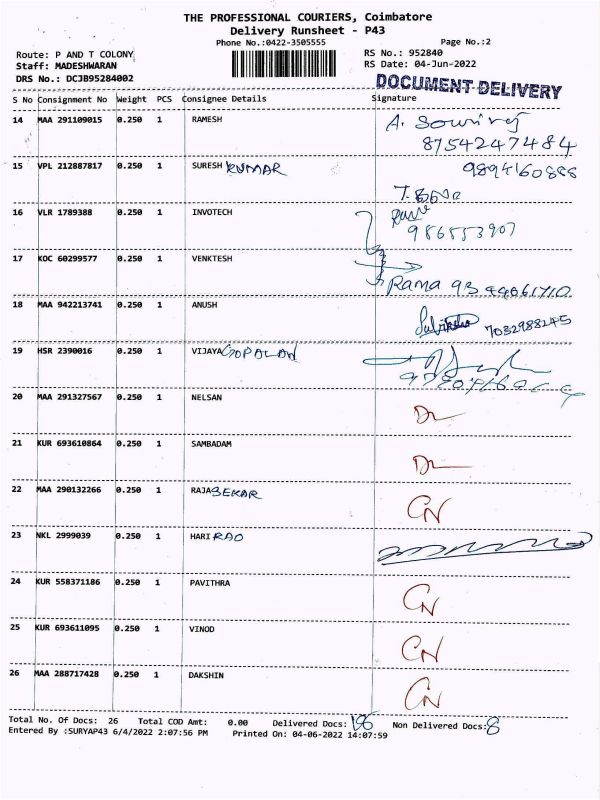 THE PROFESSIONAL COURIERS, Coimbatore
Delivery Runsheet - P43
Phone No.:0422-3505555
Page No.:2
Route: P AND T COLONY
RS No.: 952840
Staff: MADESHWARAN
RS Date: 04-Jun-2022
DRS No.: DCJB95284002
DOCUMENT DELIVERY
S No Consignment No Weight PCS Consignee Details Signature
14 MAA 291109015 0.250 1 RAMESH
8754247484
15 VPL 212887817 0.250 1 SURESH KUMAR
16 VLR 1789388 0.250 1 INVOTECH
17 KOC 60299577 0.250 1 VENKTESH Rama
18 MAA 942213741 0.250 1 ANUSH 7032988245
19 HSR 2390016 0.250 1 VIJAYA GOPALAN
20 MAA 291327567 0.250 1 NELSAN
21 KUR 693610864 0.250 1 SAMBADAM
22 MAA 290132266 0.250 1 RAJA SEKAR CN
23 NKL 2999039 0.250 1 HARI RAO
24 KUR 558371186 0.250 1 PAVITHRA CN
25 KUR 693611095 0.250 1 VINOD CN
26 MAA 288717428 0.250 1 DAKSHIN CN
Total No. Of Docs: 26 Total COD Amt: 0.00 Delivered Docs: 18 Non Delivered Docs: 8
Entered By :SURYAP43 6/4/2022 2:07:56 PM Printed On: 04-06-2022 14:07:59